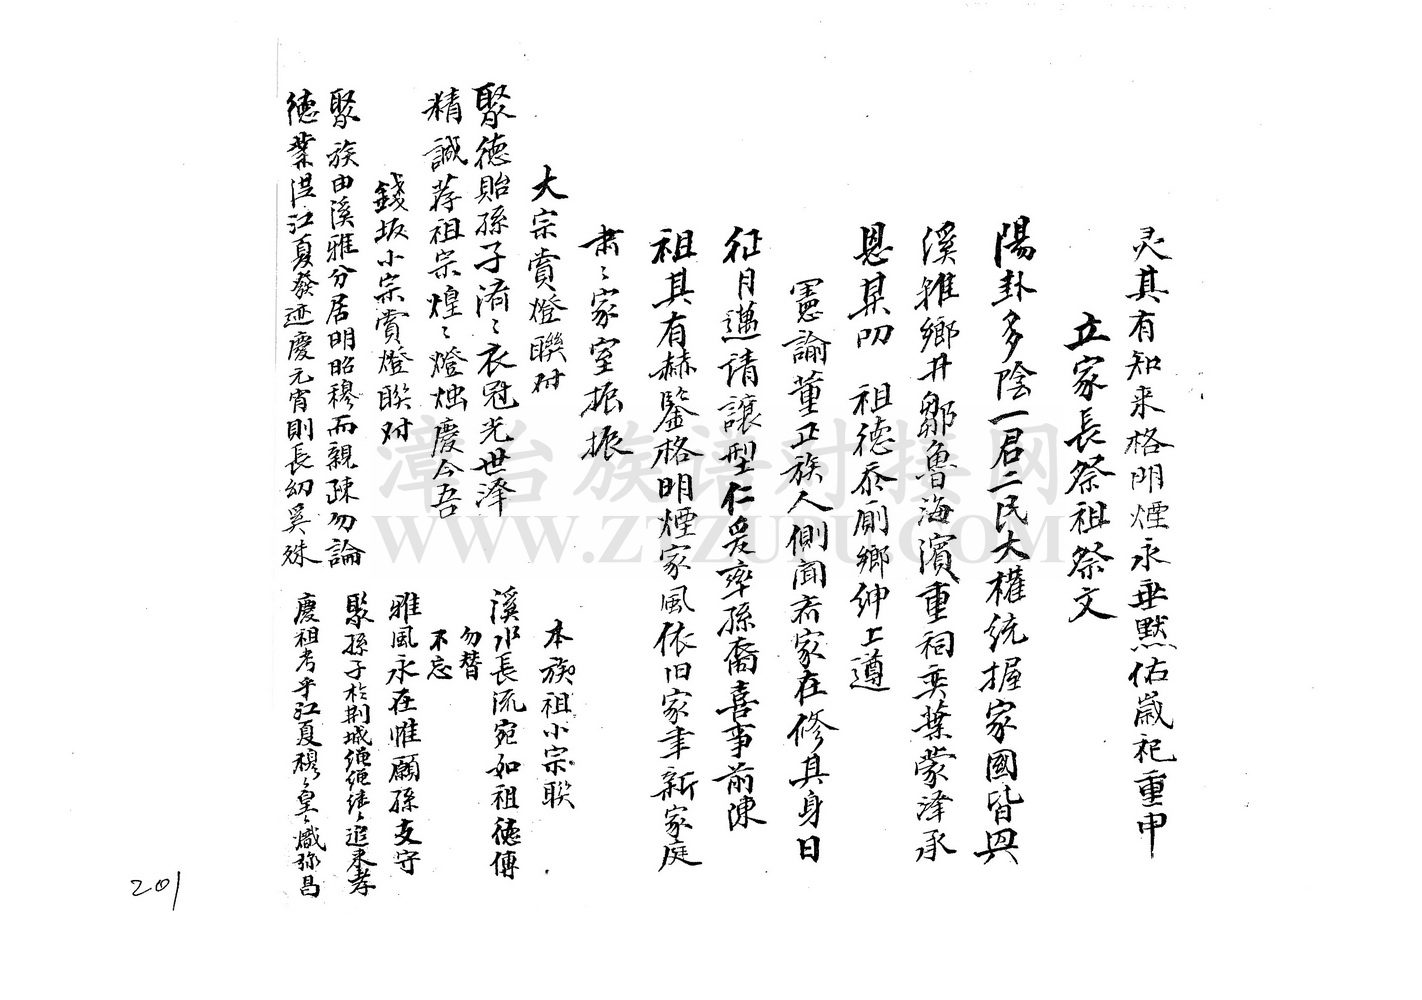 灵其有知来格明煙永垂默佑歲祀重申
立家長祭祖祭文
陽卦多陰一君二民大權統握家國皆與
溪雅鄉升鄒魯海濱重祠奕葉蒙澤承
恩某叨 祖德忝廁鄉紳上遵
憲諭董正族人側聞齐家在修其身日
征月邁請讓型仁爰率孫裔喜事前陳
祖其有赫鑒格明煙家風依旧家聿新家庭
肃〻家室振振
大宗賞燈聯对
聚德貽孫子濟〻衣冠光世澤
精誠荐祖宗煌〻燈烛慶今吾
錢坂小宗賞燈联对
聚族由溪雅分居明昭穆而親疎勿論
德業湜江夏發迹慶元宵則長幼奚殊
本族祖小宗联
溪水長流宛如祖德傳
勿替
不忘
雅風永在惟願孫支守
聚孫子於荆城繩繩继〻追来孝
慶祖考乎江夏穆〻皇〻熾弥昌
201
漳台族谱对接网
WWW.ZTZUPU.COM